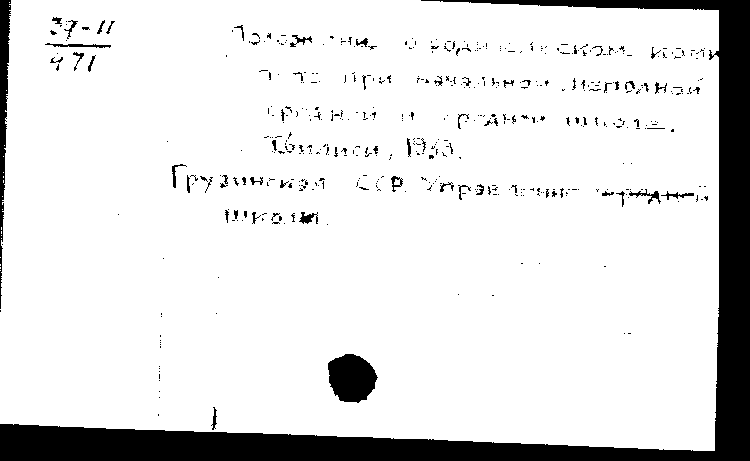 39-11
471
Положение о родительском коми
тете при начальной, неполной
средней и средней школе.
Тбилиси, 19
Грузинская ССР. Управление средней
школы.